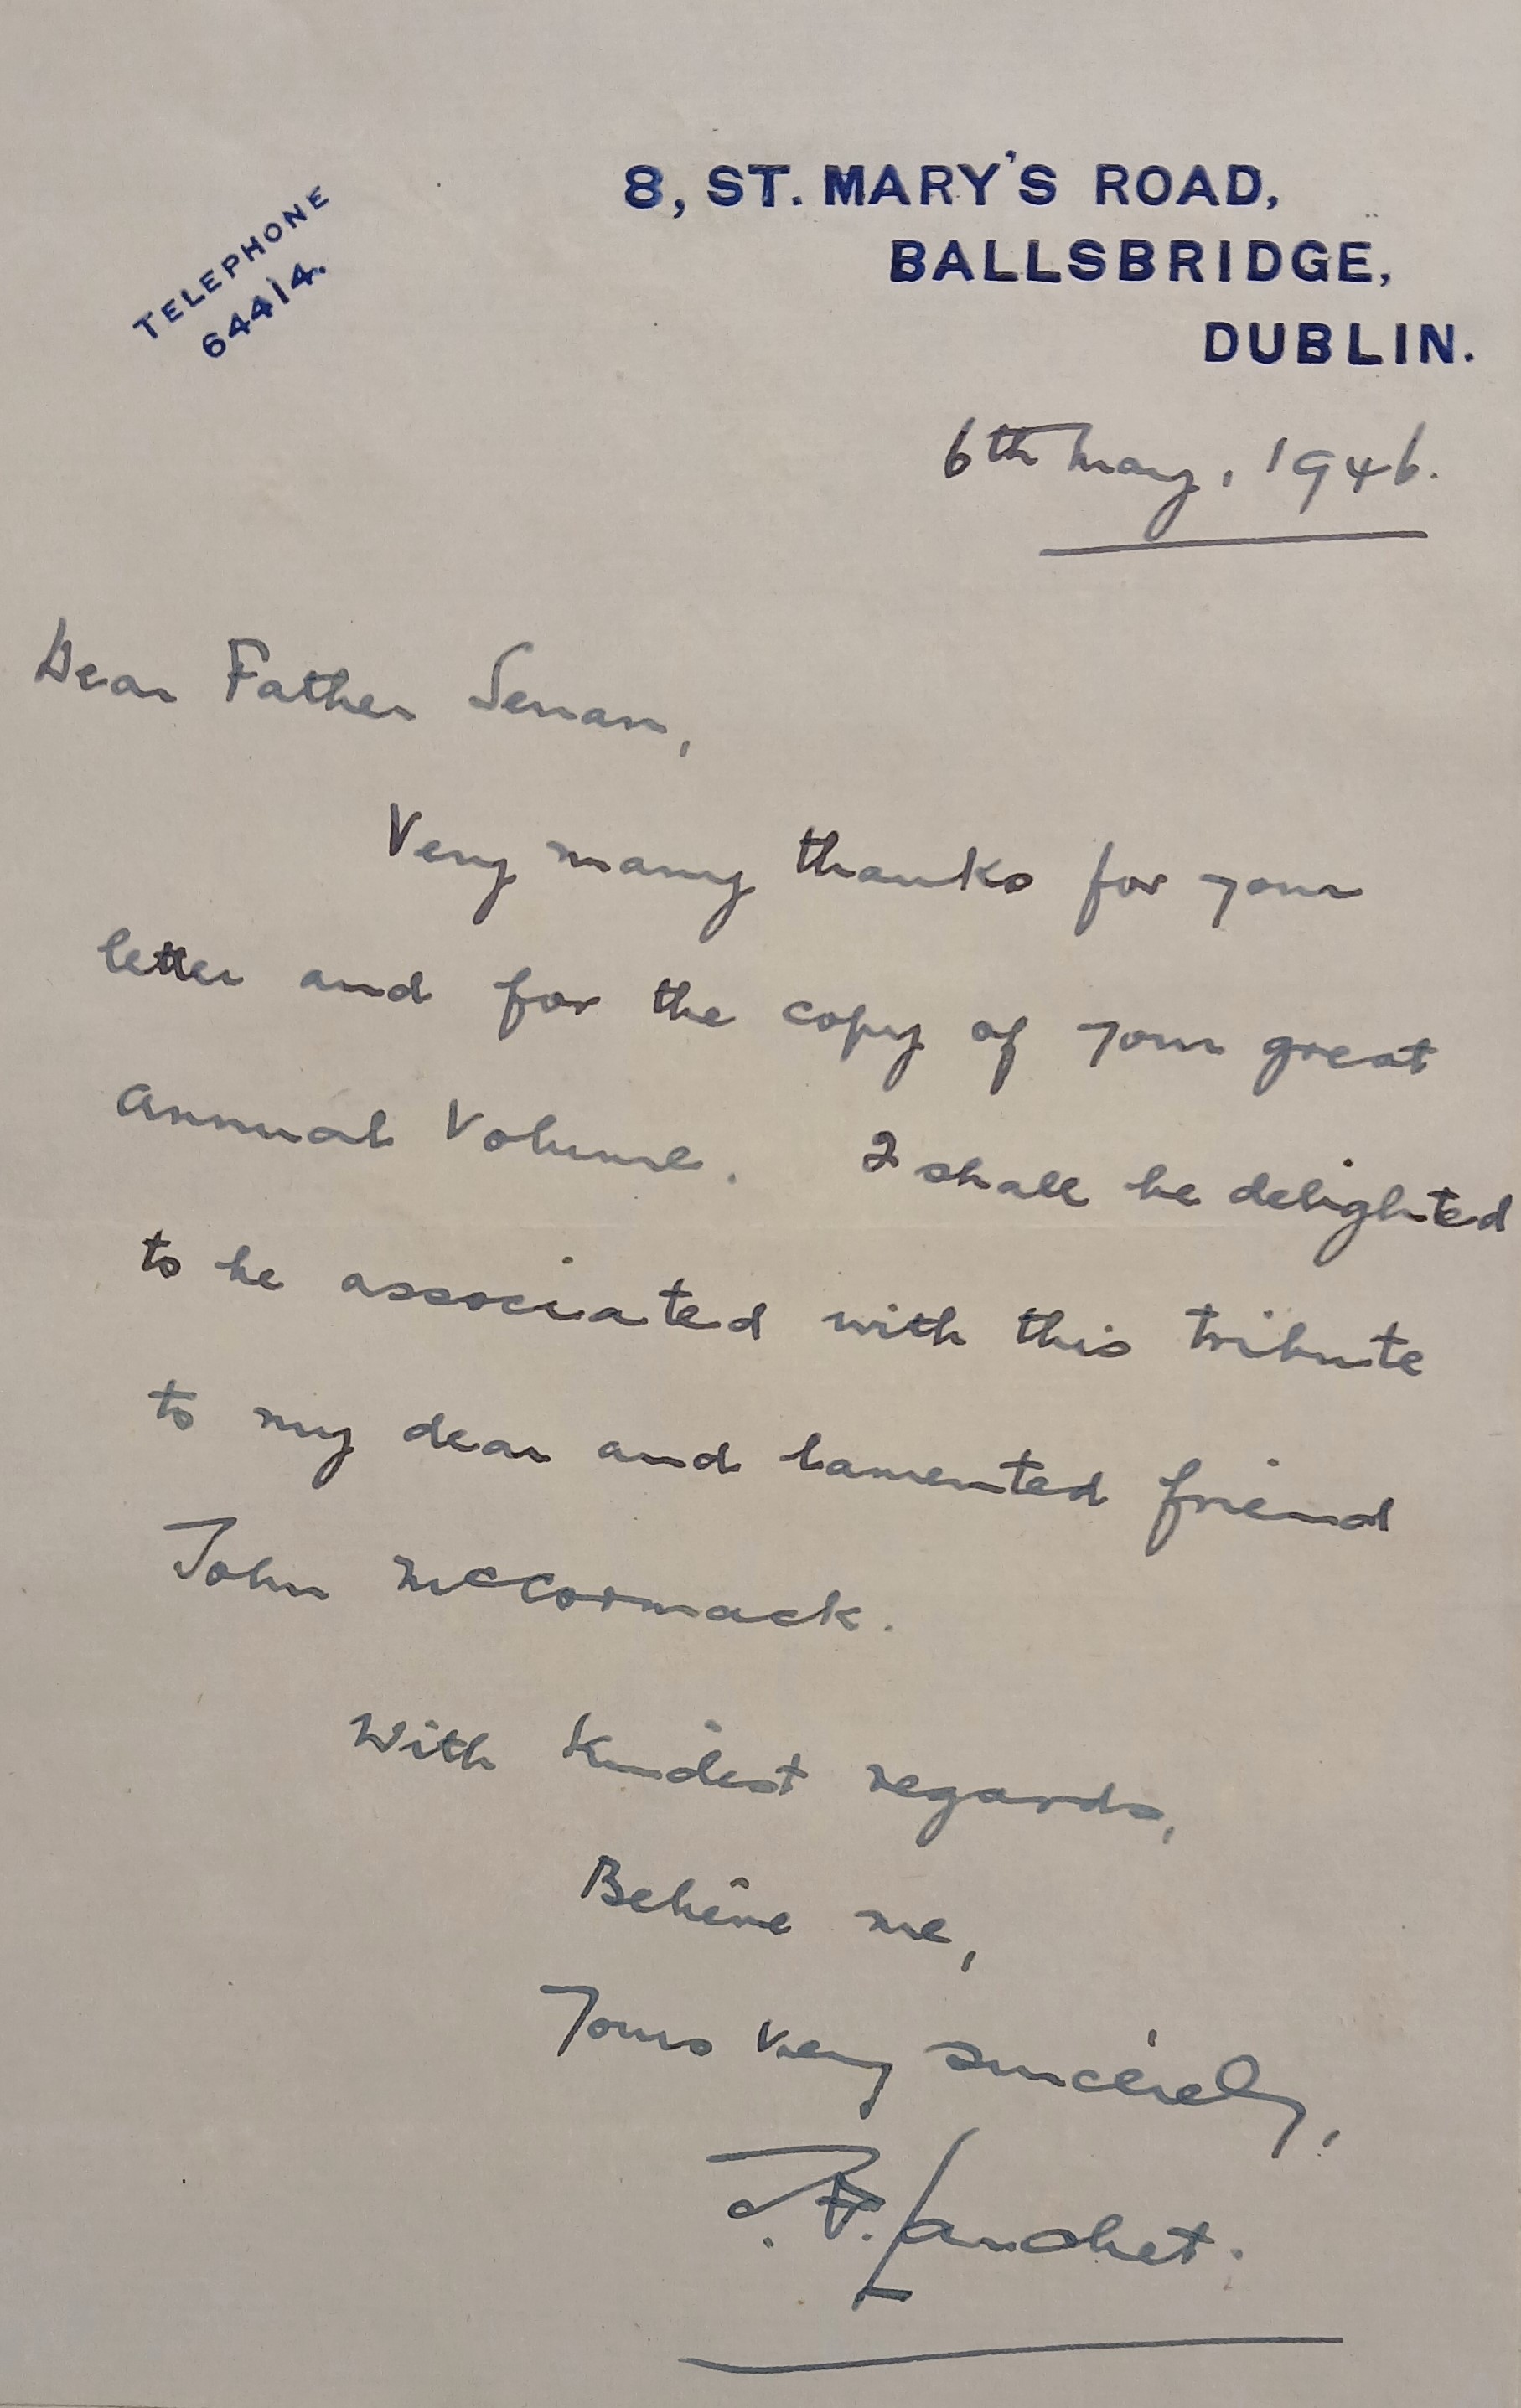 TELEPHONE
64414.
8, ST. MARY'S ROAD,
BALLSBRIDGE,
DUBLIN.
6th May, 1946.
Dear Father Senan,
Very many thanks for your
letter and for the copy of your great
Annual Volume. I shall be delighted
to be associated with this tribute
to my dear and lamented friend
John McCormack.
With kindest regards,
Believe me,
Yours very sincerely,
J.F. Larchet.